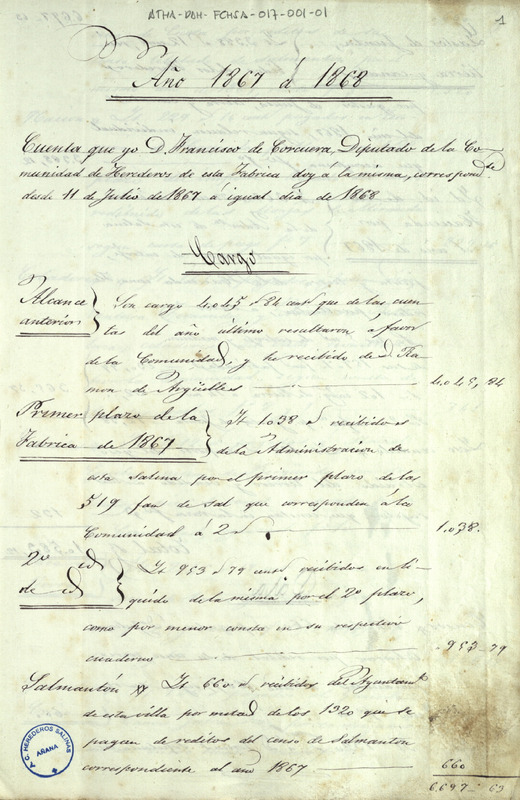 ATHA-DAH-FCHSA-017-001-01
1
Año 1867 á 1868
Cuenta que yo D. Francisco de Corcuera, Diputado de la Co-
munidad de Herederos de esta Fabrica doy a la misma, correspond.te
desde 11 de Julio de 1867 á igual dia de 1868
Cargo
Alcance anterior } Son cargo 4.045 r 84 cent que de las cuen-
tas del año ultimo resultaron á favor
de la Comunidad, y he recibido de D. Ra-
mon de Argüelles 4.045, 84
Primer plazo de la Fabrica de 1867 } Yt 1.038 r recibidos
de la Administracion de
esta salina por el primer plazo de las
519 fan de sal que corresponden á la
Comunidad á 2 r 1.038.
2º id de id } Yt 953 r 79 cent recibidos en lí-
quido de la misma por el 2º plazo,
como por menor consta en su respectivo
cuaderno 953 79
Salmantón Yt 660 r recibidos del Ayuntam.to
de esta villa por metad de los 1320 que se
pagan de reditos del censo de Salmanton
correspondiente al año 1867 660
6.697 63
C. HEREDEROS SALINAS
AÑANA